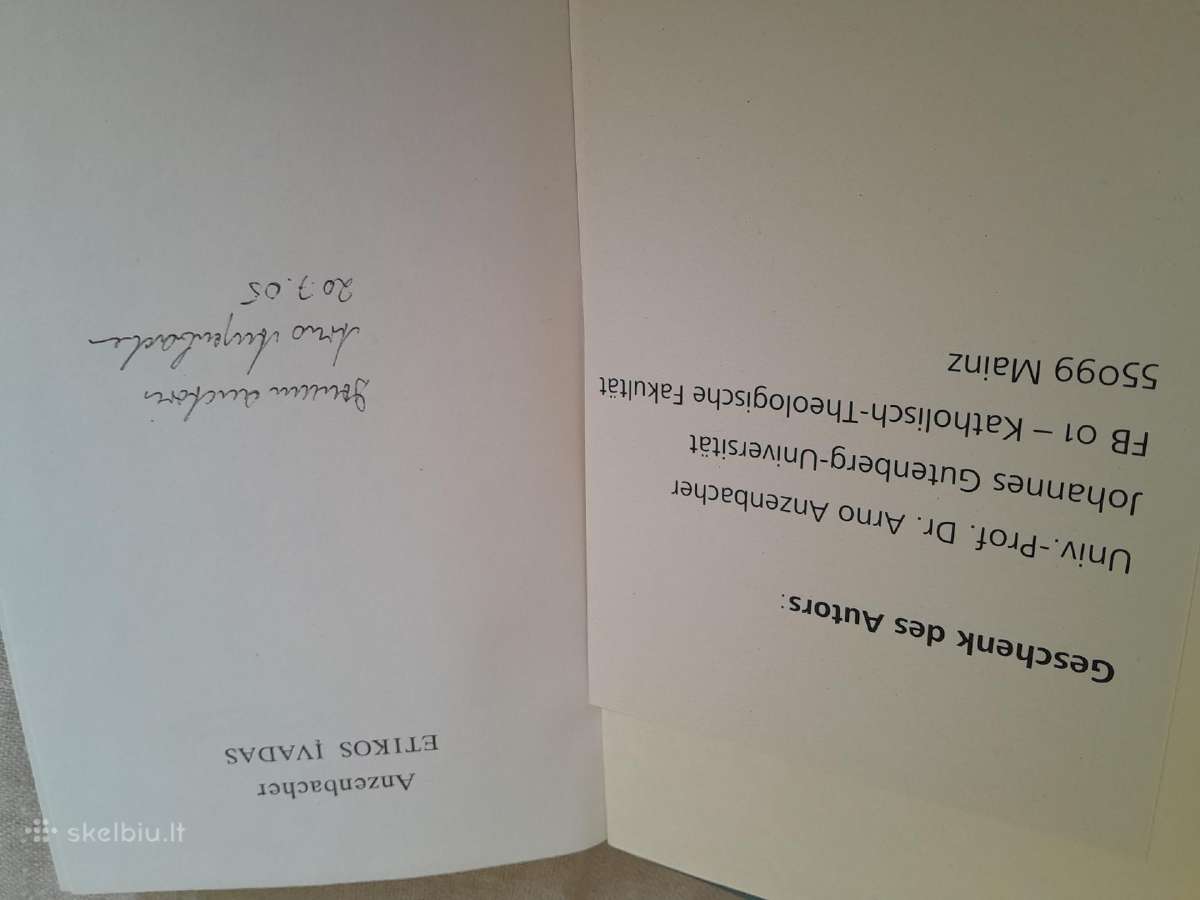 Geschenk des Autors:
Univ.-Prof. Dr. Arno Anzenbacher
Johannes Gutenberg-Universität
FB 01 – Katholisch-Theologische Fakultät
55099 Mainz
Anzenbacher
ETIKOS ĮVADAS
Donum auctoris
Arno Anzenbacher
20.7.05
skelbiu.lt